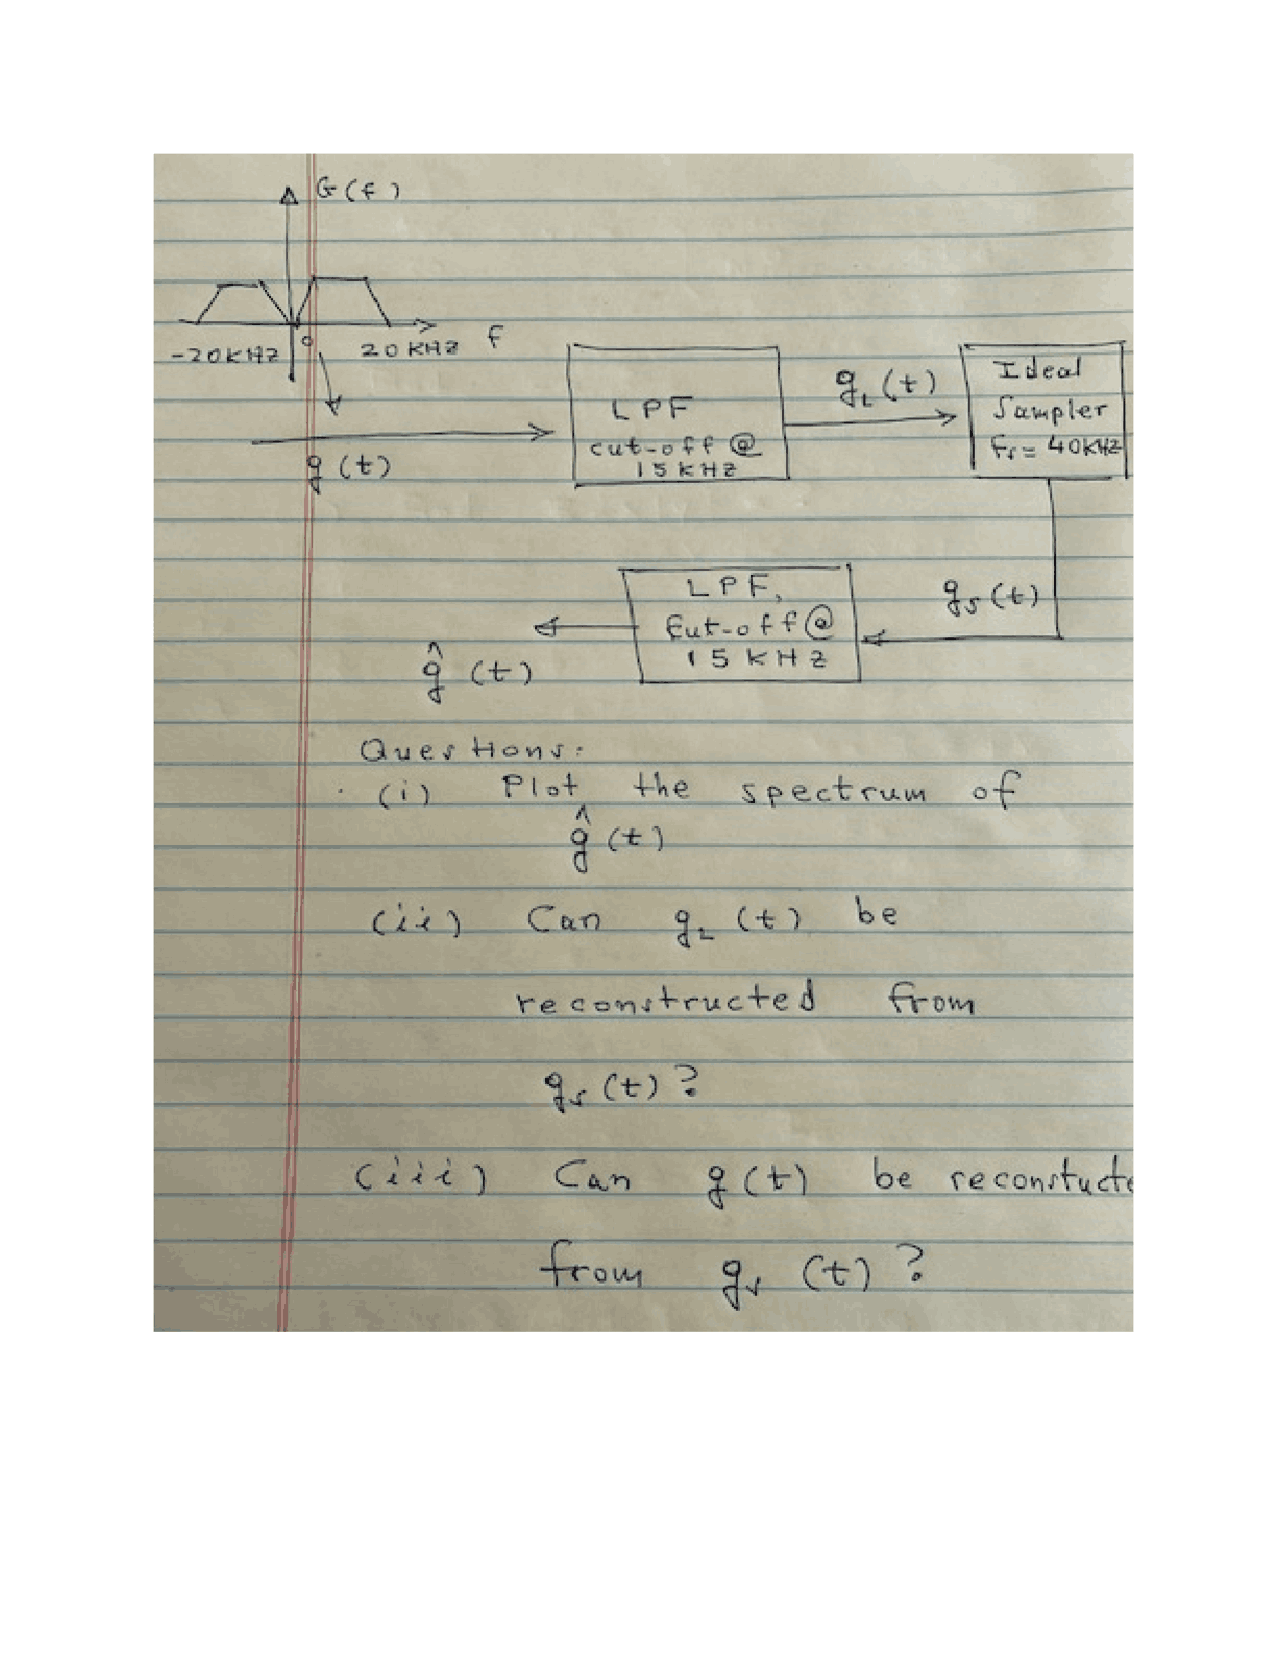 G(f)
-20KHZ 0 20KHZ f
g(t)
LPF
cut-off @
15KHZ
gL(t)
Ideal
Sampler
fs = 40KHZ
gs(t)
LPF,
Cut-off @
15KHZ
ĝ(t)
Questions:
(i) Plot the spectrum of
ĝ(t)
(ii) Can gL(t) be
reconstructed from
gs(t)?
(iii) Can g(t) be reconstucte
from gs(t)?